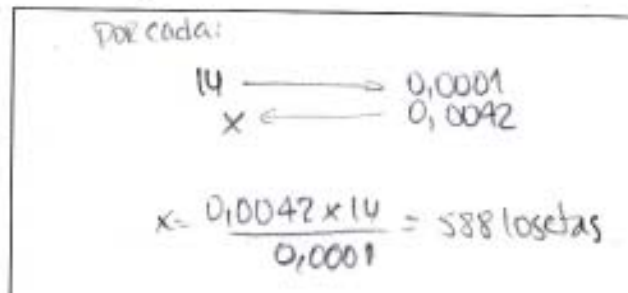 Por cada:
14 → 0,0001
x ← 0,0042
x = 0,0042 x 14 / 0,0001 = 588 losetas